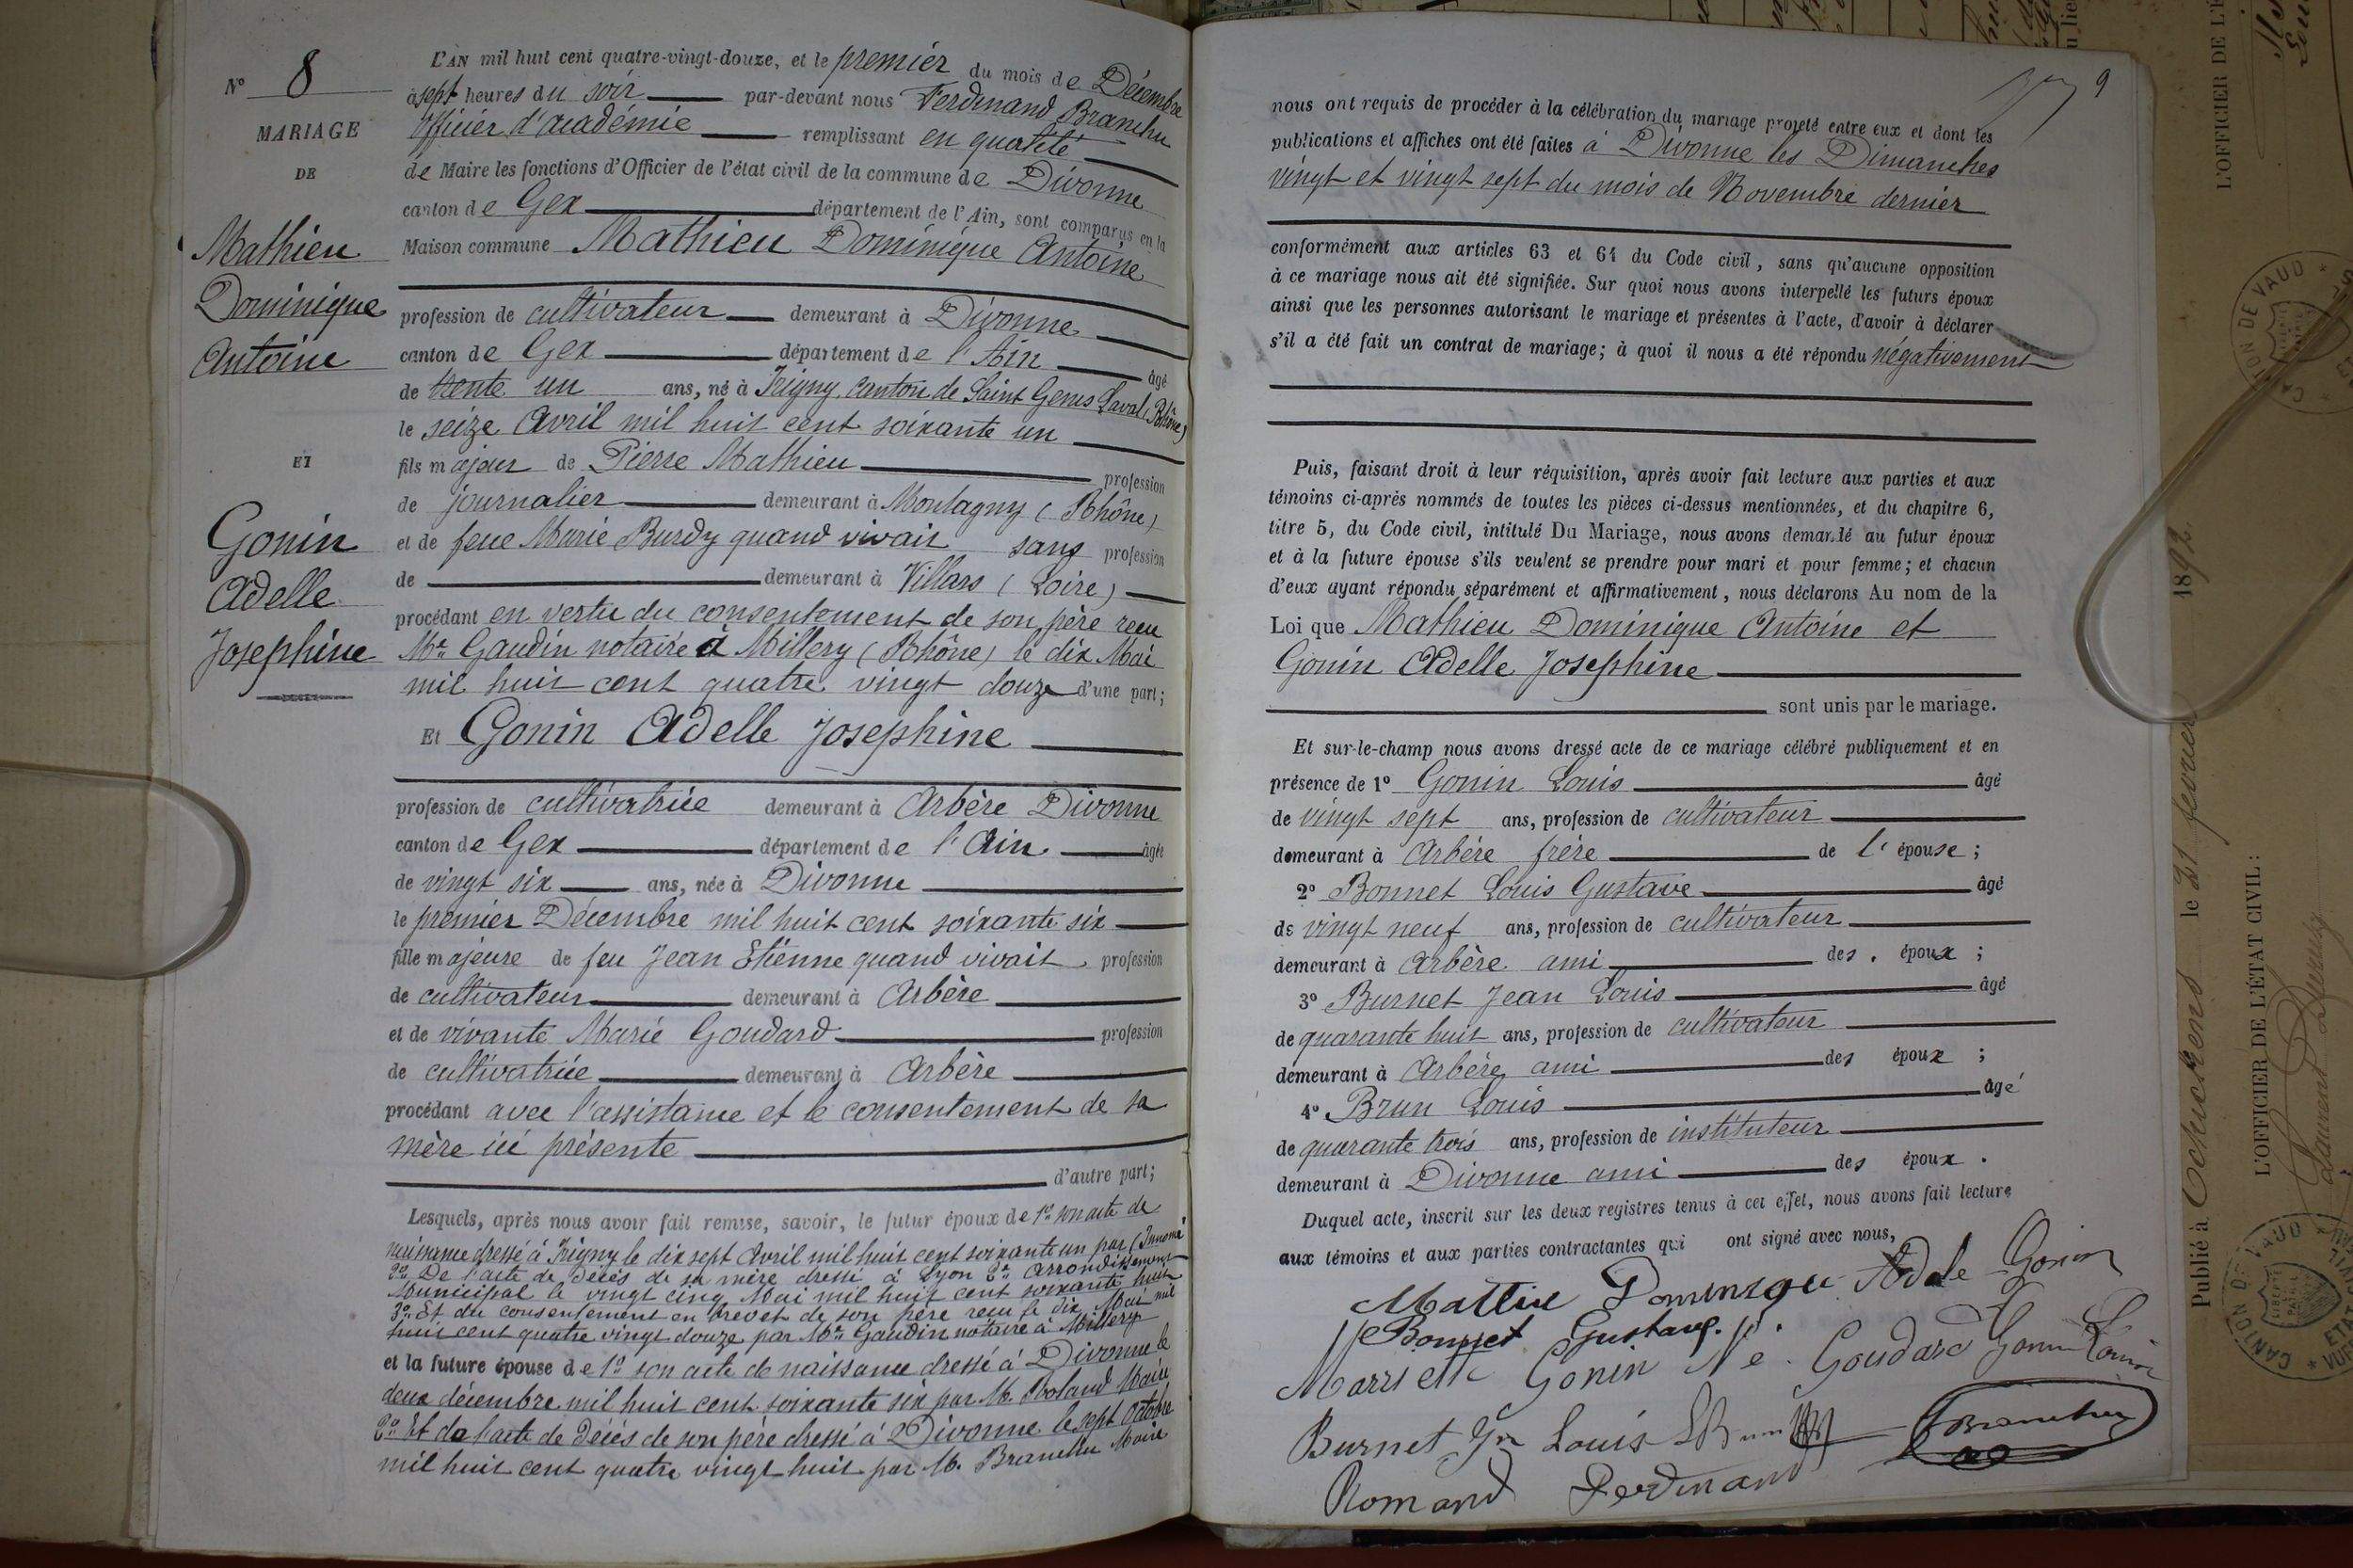 N° 8
MARIAGE
DE
Mathieu
Dominique
Antoine
ET
Gonin
Adelle
Josephine
L'AN mil huit cent quatre-vingt-douze, et le premier du mois de Décembre
à sept heures du soir par-devant nous Ferdinand Branchu
Officier d'académie remplissant en qualité
de Maire les fonctions d'Officier de l'état civil de la commune de Divonne
canton de Gex département de l'Ain, sont comparus en la
Maison commune Mathieu Dominique Antoine
profession de cultivateur demeurant à Divonne
canton de Gex département de l'Ain âgé
de trente un ans, né à Irigny canton de Saint Genis Laval (Rhône)
le seize Avril mil huit cent soixante un
fils majeur de Pierre Mathieu profession
de journalier demeurant à Montagny (Rhône)
et de feue Marie Burdy quand vivait sans profession
de demeurant à Villars (Loire)
procédant en vertu du consentement de son père reçu
Me Gaudin notaire à Millery (Rhône) le dix Mai
mil huit cent quatre vingt douze d'une part;
Et Gonin Adelle Josephine
profession de cultivatrice demeurant à Arbère Divonne
canton de Gex département de l'Ain âgée
de vingt six ans, née à Divonne
le premier Décembre mil huit cent soixante six
fille majeure de feu Jean Etienne quand vivait profession
de cultivateur demeurant à Arbère
et de vivante Marie Goudard profession
de cultivatrice demeurant à Arbère
procédant avec l'assistance et le consentement de sa
mère ici présente
d'autre part;
Lesquels, après nous avoir fait remise, savoir, le futur époux de 1° son acte de
naissance dressé à Irigny le dix sept Avril mil huit cent soixante un par (Innomé
2° De l'acte de Décès de sa mère dressé à Lyon 2e arrondissement
Municipal le vingt cinq Mai mil huit cent soixante huit
3° Et du consentement en brevet de son père reçu le dix Mai mil
huit cent quatre vingt douze par Me Gaudin notaire à Millery
et la future épouse de 1° son acte de naissance dressé à Divonne le
deux décembre mil huit cent soixante six par M. Roland Maire
2° Et de l'acte de Décès de son père dressé à Divonne le sept Octobre
mil huit cent quatre vingt huit par M. Branchu Maire
9
nous ont requis de procéder à la célébration du mariage projeté entre eux et dont les
publications et affiches ont été faites à Divonne les Dimanches
vingt et vingt sept du mois de Novembre dernier
conformément aux articles 63 et 64 du Code civil, sans qu'aucune opposition
à ce mariage nous ait été signifiée. Sur quoi nous avons interpellé les futurs époux
ainsi que les personnes autorisant le mariage et présentes à l'acte, d'avoir à déclarer
s'il a été fait un contrat de mariage; à quoi il nous a été répondu négativement
Puis, faisant droit à leur réquisition, après avoir fait lecture aux parties et aux
témoins ci-après nommés de toutes les pièces ci-dessus mentionnées, et du chapitre 6,
titre 5, du Code civil, intitulé Du Mariage, nous avons demandé au futur époux
et à la future épouse s'ils veulent se prendre pour mari et pour femme; et chacun
d'eux ayant répondu séparément et affirmativement, nous déclarons Au nom de la
Loi que Mathieu Dominique Antoine et
Gonin Adelle Josephine
sont unis par le mariage.
Et sur-le-champ nous avons dressé acte de ce mariage célébré publiquement et en
présence de 1° Gonin Louis âgé
de vingt sept ans, profession de cultivateur
demeurant à Arbère frère de l'épouse;
2° Bonnet Louis Gustave âgé
de vingt neuf ans, profession de cultivateur
demeurant à Arbère ami des époux;
3° Burnet Jean Louis âgé
de quarante huit ans, profession de cultivateur
demeurant à Arbère ami des époux;
4° Brun Louis âgé
de quarante trois ans, profession de instituteur
demeurant à Divonne ami des époux.
Duquel acte, inscrit sur les deux registres tenus à cet effet, nous avons fait lecture
aux témoins et aux parties contractantes qui ont signé avec nous,
Mattieu Dominique Adele Gonin
Bonnet Gustave.
Gonin Née Goudard Gonin Louis
Burnet Jn Louis LBrun Branchu
Romand Ferdinand
L'OFFICIER DE L'É
Publié à Echichens le 21 fevrier 1892
L'OFFICIER DE L'ÉTAT CIVIL:
CANTON DE VAUD
CANTON DE VAUD